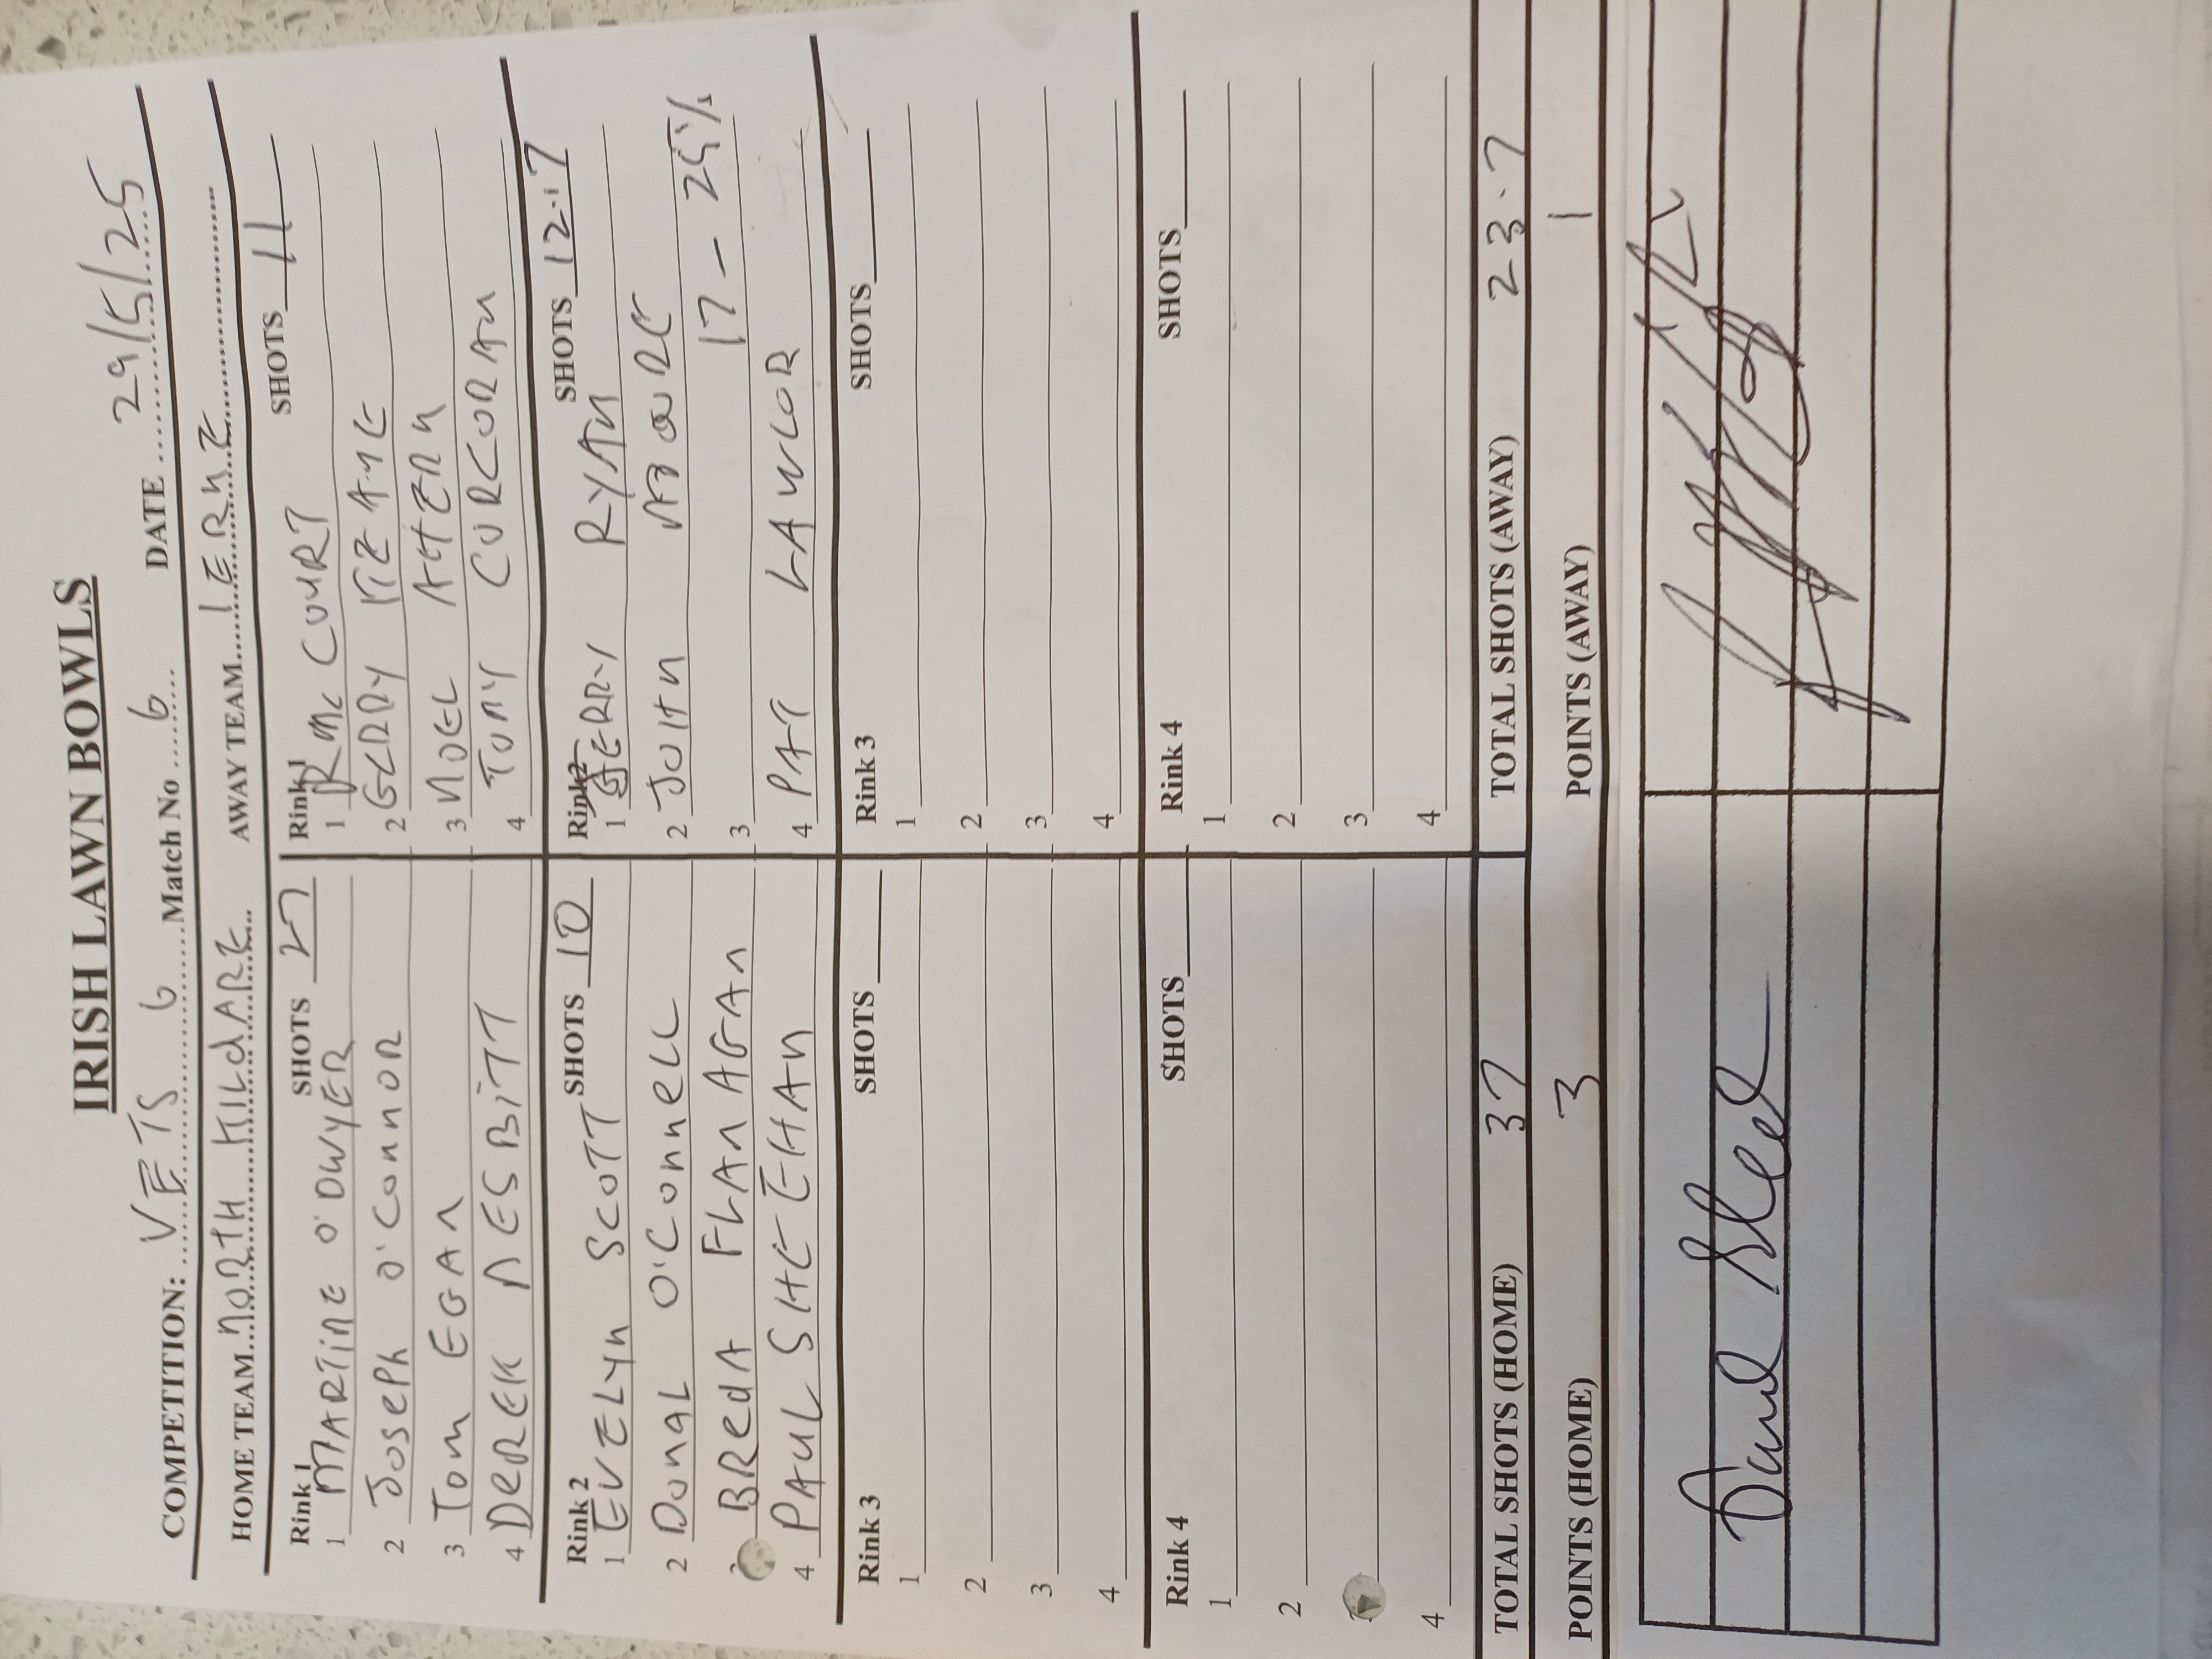 IRISH LAWN BOWLS
COMPETITION: VETS 6 Match No 6 DATE 29/5/25
HOME TEAM NORTH KILDARE AWAY TEAM IERNE
Rink 1 SHOTS 27 Rink 1 SHOTS 11
1 MARTINE O'DWYER 1 R Mc COURT
2 Joseph O'Connor 2 GERRY
3 Tom EGAN 3 NOEL AHERN
4 DEREK NESBITT 4 TONY CORCORAN
Rink 2 SHOTS 10 Rink 2 SHOTS 12.7
1 EVELYN SCOTT 1 GERRY RYAN
2 DONAL O'CONNELL 2 JOHN MOORE
BREDA FLANAGAN 3 17 - 25%
4 PAUL SHEEHAN 4 PAT LAWLOR
Rink 3 SHOTS Rink 3 SHOTS
1 1
2 2
3 3
4 4
Rink 4 SHOTS Rink 4 SHOTS
1 1
2 2
3
4 4
TOTAL SHOTS (HOME) 37 TOTAL SHOTS (AWAY) 23.7
POINTS (HOME) 3 POINTS (AWAY) 1